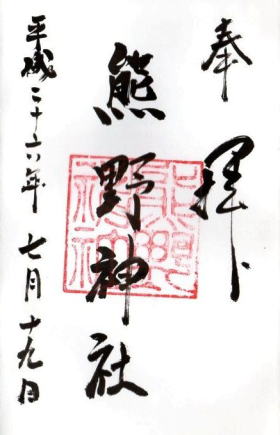 奉拝
熊野神社
平成二十六年七月十九日